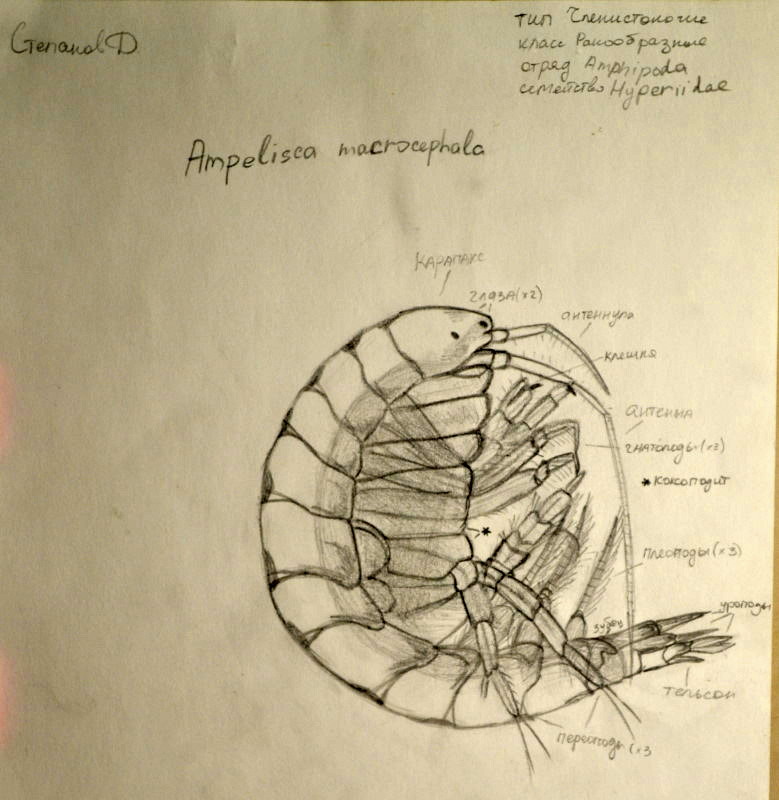 Степанов Д
тип Членистоногие
класс Ракообразные
отряд Amphipoda
семейство Hyperiidae
Ampelisca macrocephala
карапакс
глаза (x2)
антеннула
клешня
антенна
гнатоподы (x3)
* коксоподит
*
плеоподы (x3)
уроподы
зубец
тельсон
переоподы (x3